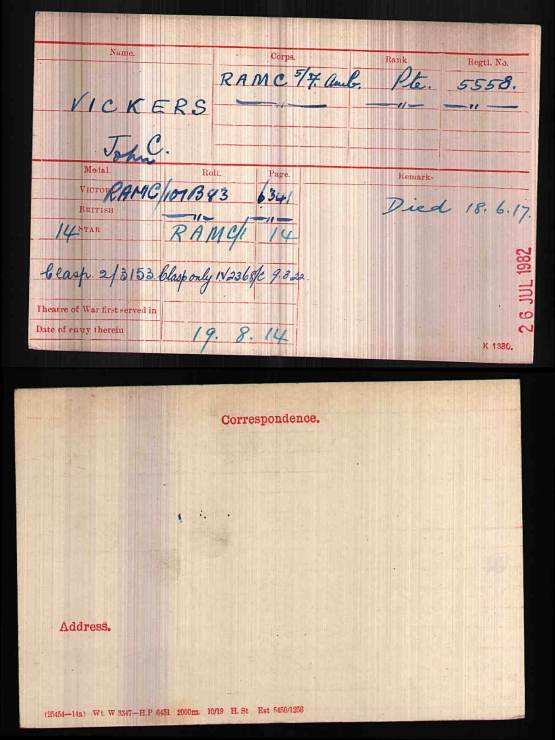 Name. Corps. Rank Regtl. No.
RAMC 5/F. Amb. Pte. 5558.
VICKERS —"— —"— —"—
John C.
Medal. Roll. Page. Remarks
VICTORY RAMC/101B93 6341
BRITISH —"— —"— Died 18.6.17.
14 STAR RAMC/1 14
Clasp. 2/3153. Clasp only IV2368/C 9.3.22.
26 JUL 1982
Theatre of War first served in
Date of entry therein 19. 8. 14
K 1380.
Correspondence.
Address.
(25454—14a) Wt. W 3347—H.P 6451 2000m. 10/19 H. St Est 5450/1256